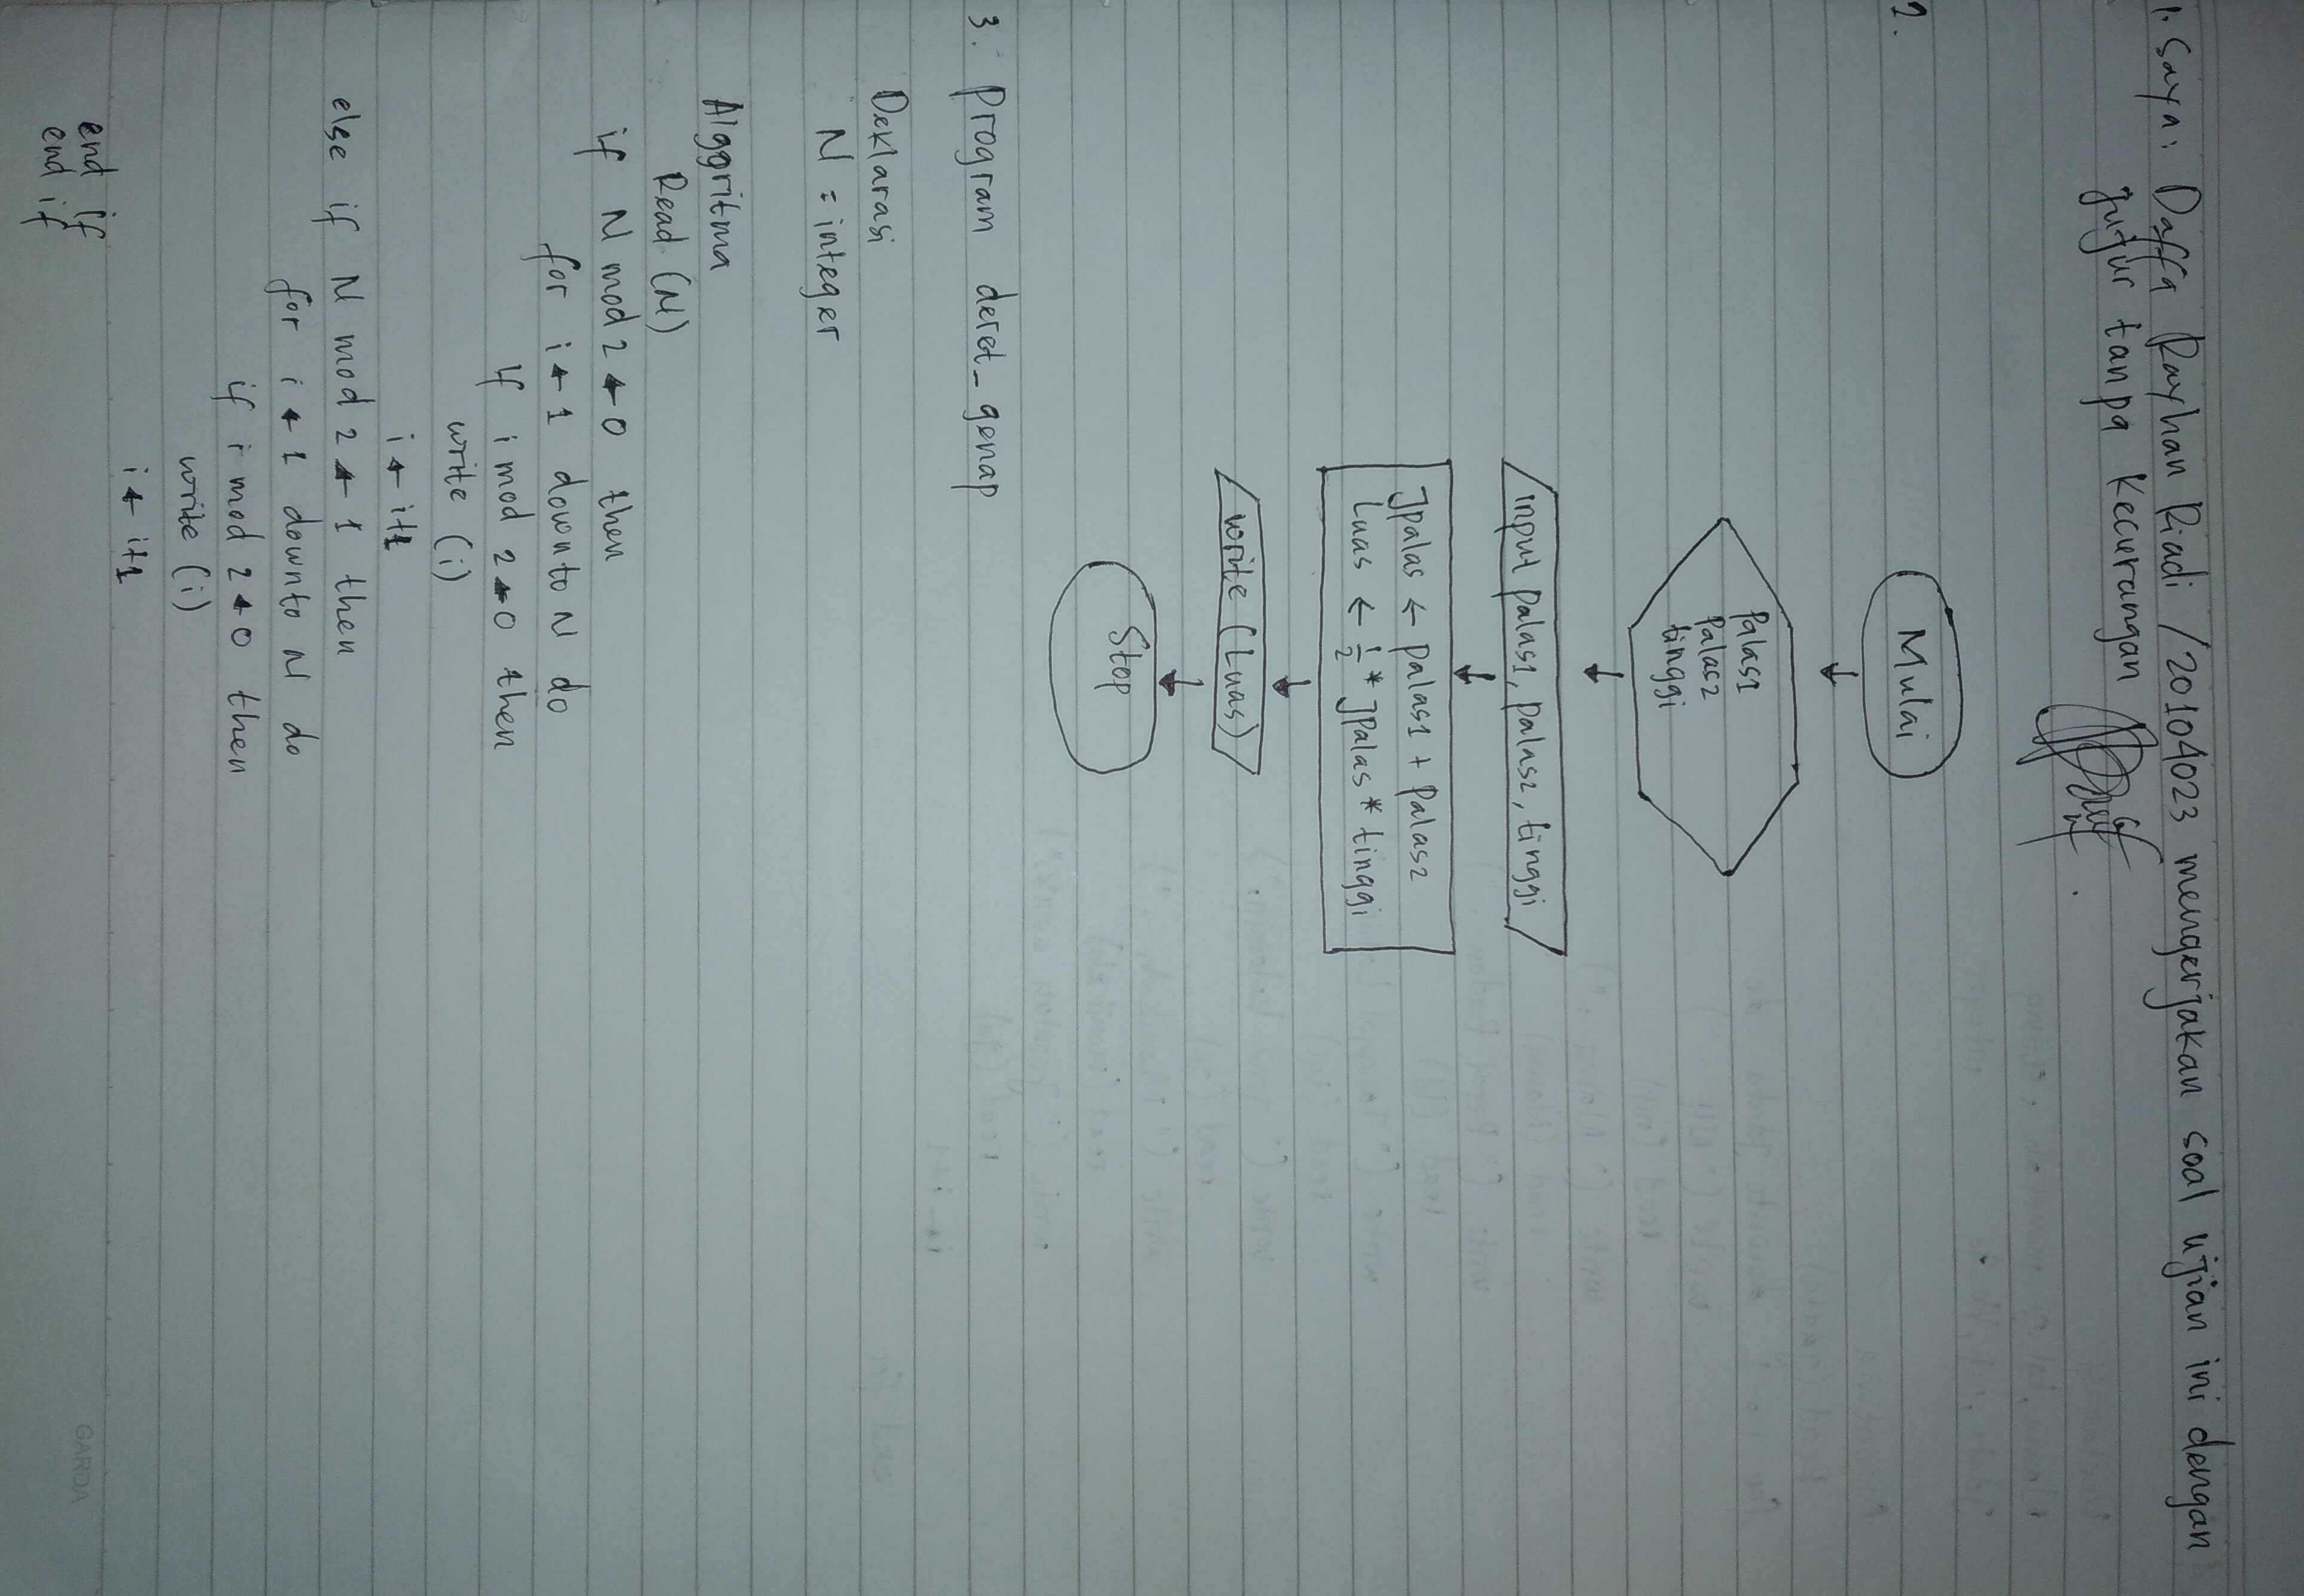 1. Saya: Daffa Rayhan Riadi /20104023 mengerjakan soal ujian ini dengan
jujur tanpa kecurangan
2.
Mulai
Palas1
Palas2
tinggi
input palas1, palas2, tinggi
Jpalas ← palas1 + Palas2
Luas ← 1/2 * JPalas * tinggi
write (Luas)
Stop
3. Program deret_genap
Deklarasi
N = integer
Algoritma
Read (N)
if N mod 2 ← 0 then
for i ← 1 downto N do
If i mod 2 ← 0 then
write (i)
i ← i+1
else if N mod 2 ← 1 then
for i ← 1 downto N do
if i mod 2 ← 0 then
write (i)
i ← i+1
end if
end if
GARDA